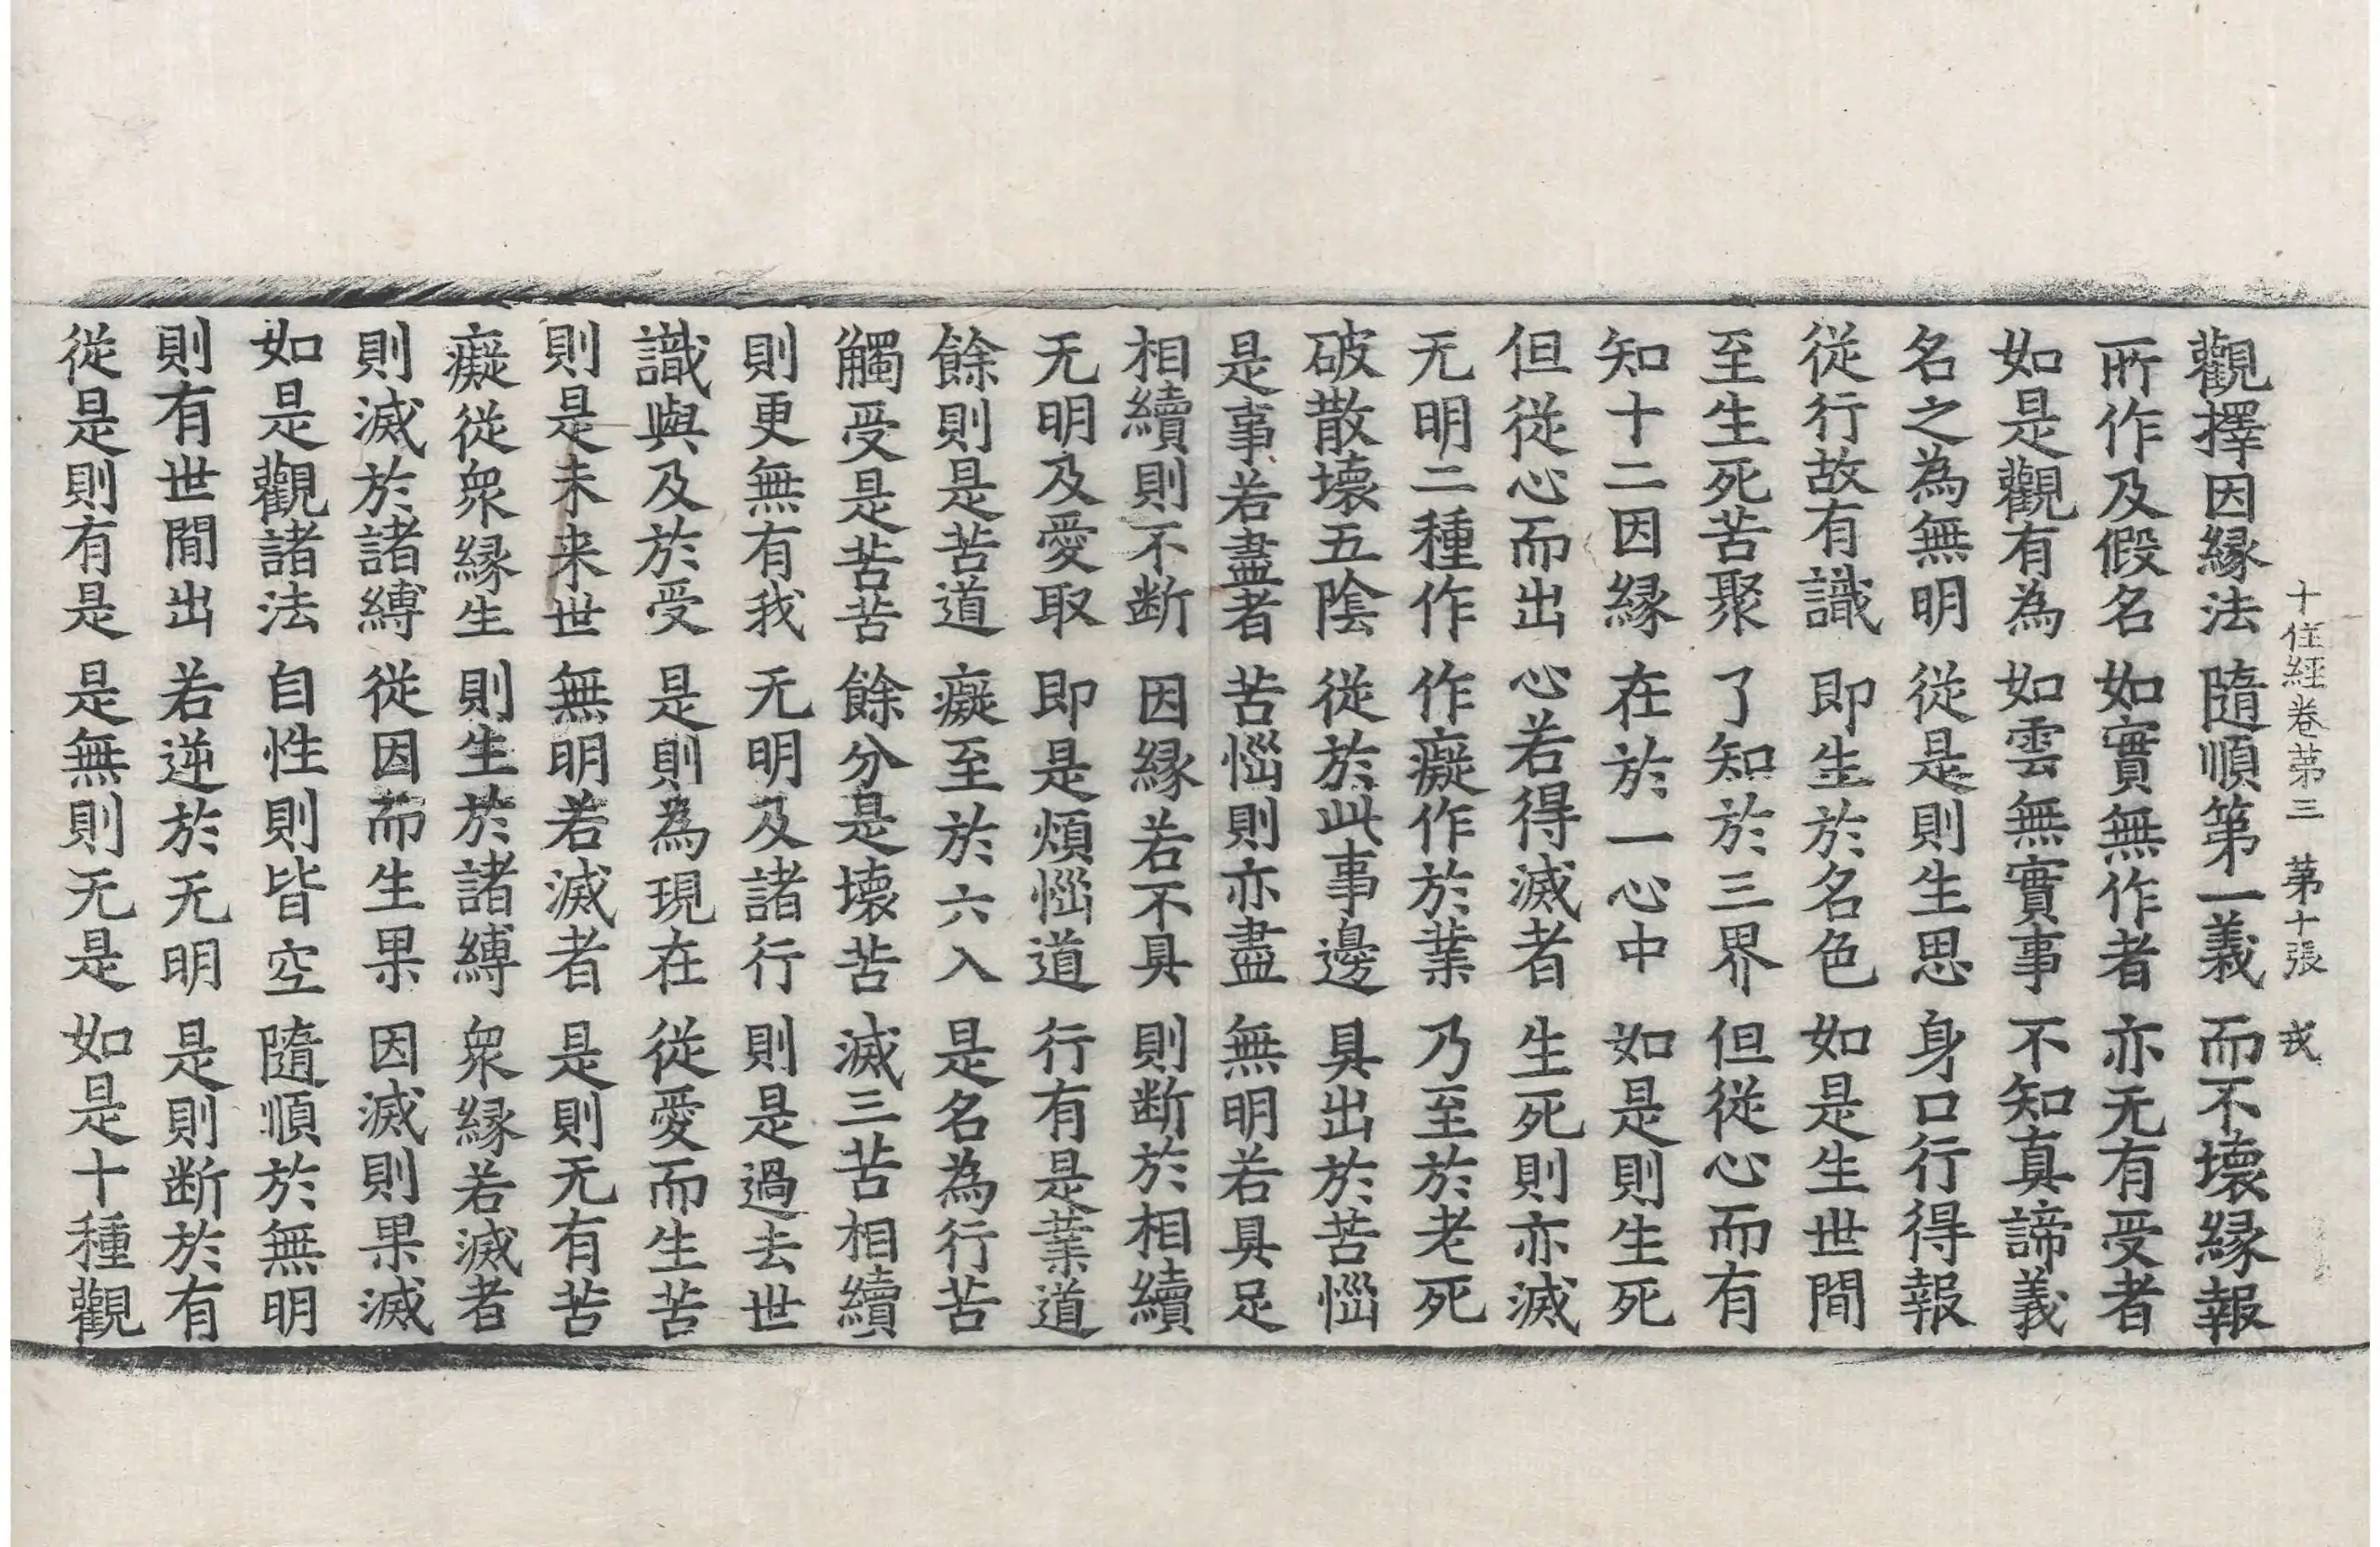 十住經卷苐三 苐十張 戎
觀擇因縁法 隨順第一義 而不壞縁報
所作及假名 如實無作者 亦无有受者
如是觀有為 如雲無實事 不知真諦義
名之為無明 從是則生思 身口行得報
從行故有識 即生於名色 如是生世間
至生死苦聚 了知於三界 但從心而有
知十二因縁 在於一心中 如是則生死
但從心而出 心若得滅者 生死則亦滅
无明二種作 作癡作於業 乃至於老死
破散壞五陰 從於此事邊 具出於苦惱
是事若盡者 苦惱則亦盡 無明若具足
相續則不断 因縁若不具 則断於相續
无明及愛取 即是煩惱道 行有是業道
餘則是苦道 癡至於六入 是名為行苦
觸受是苦苦 餘分是壞苦 滅三苦相續
則更無有我 无明及諸行 則是過去世
識與及於受 是則為現在 從愛而生苦
則是未来世 無明若滅者 是則无有苦
癡從衆縁生 則生於諸縛 衆縁若滅者
則滅於諸縛 從因而生果 因滅則果滅
如是觀諸法 自性則皆空 隨順於無明
則有世間出 若逆於无明 是則断於有
從是則有是 是無則无是 如是十種觀